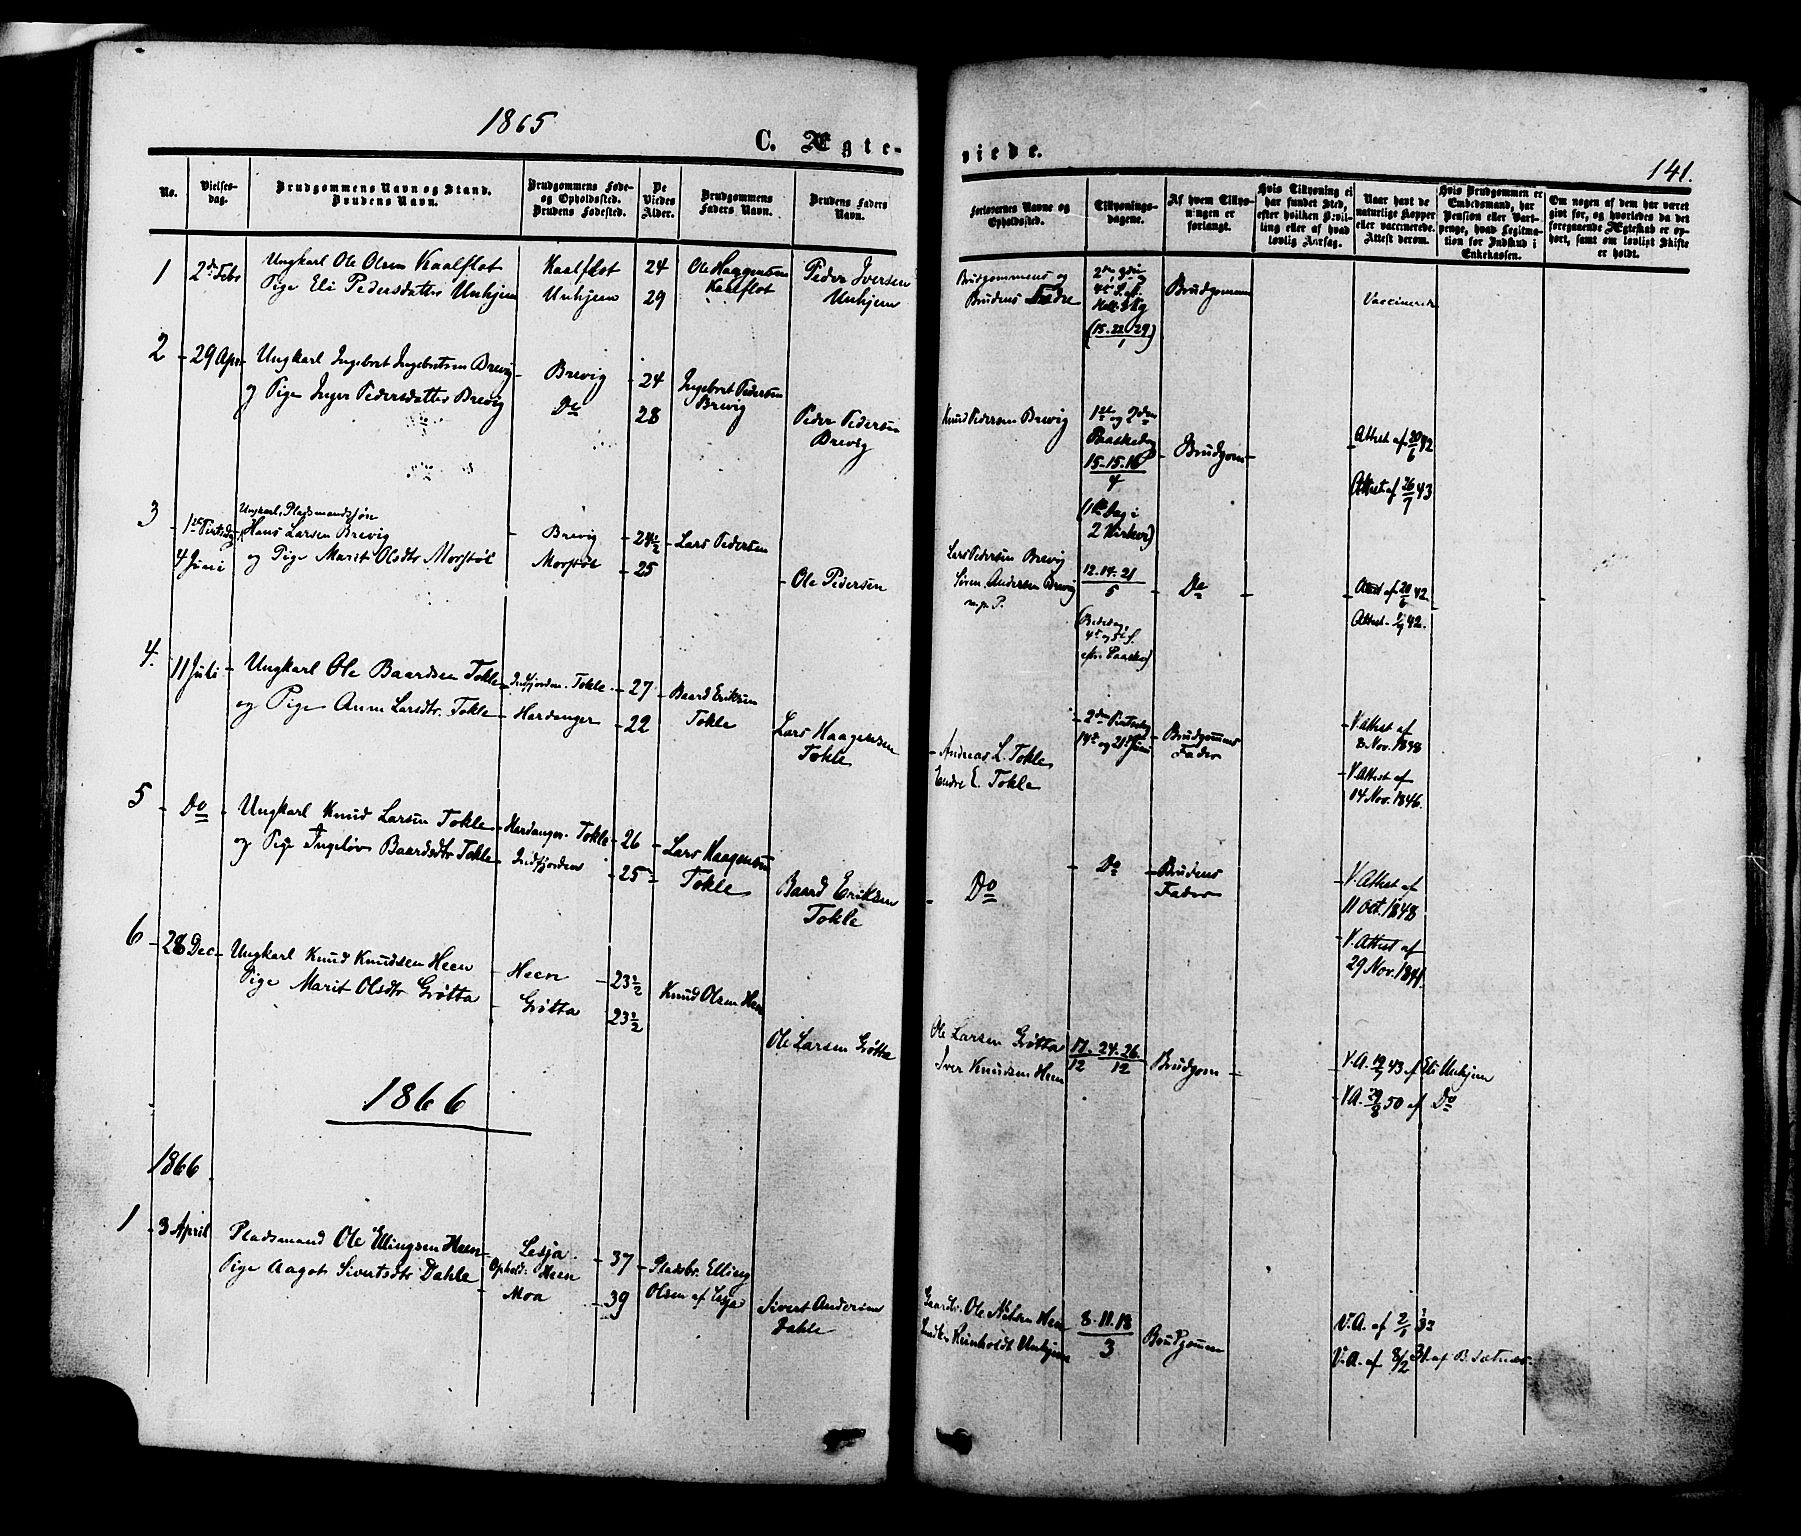 1865
C. Ægte-
viede.
141.
No.
Vielses-
dag.
Brudgommens Navn og Stand.
Brudens Navn.
Brudgommens Føde-
og Opholdssted.
Brudens Fødested.
De
Viedes
Alder.
Brudgommens
Faders Navn.
Brudens Faders
Navn.
Forlovernes Navne og
Opholdssted.
Tillysnings-
dagene.
Af hvem Tillys-
ningen er
forlangt.
Hvis Tillysning ei
har fundet Sted,
efter hvilken Bevil-
ling eller af hvad
lovlig Aarsag.
Naar havt de
naturlige Kopper
eller vaccinerede.
Attest derom.
Hvis Brudgommen er
Embedsmand, har
Pension eller Vart-
penge, hvad Legitima-
tion for Indskud i
Enkekassen.
Om nogen af dem har været
givt før, og hvorledes da det
foregaaende Ægteskab er op-
hørt, samt om lovligt Skifte
er holdt.
1 2den Febr Ungkarl Ole Olsen Kaalflot Kaalflot 24 Ole Haagensen Peder Iversen
Pige Eli Pedersdatter Unhjem Unhjem 29 Kaalflot Unhjem
Brudgommens og
Brudens Fædre
(15.22.29)
1
Brudgommen
Vaccinerede
2 29 Apr Ungkarl Ingebret Ingebretsen Brevig Brevig 24 Ingebret Pedersen
og Pige Inger Pedersdatter Brevig Do 28 Brevig Peder Pedersen
Brevig
Knud Pedersen Brevig
1ste og 2den
Paaskedag
15-15-16
4
(1ste Dag i
2 Kirker)
Brudgom
Attest af 20/6 42
Attest af 26/7 43
3 1ste Pintsedag
4 Juni
Ungkarl, Pladsmandssøn
Hans Larsen Brevig Brevig 24½ Lars Pedersen
og Pige Marit Olsdtr Morstøl Morstøl 25 Ole Pedersen
Lars Pedersen Brevig
Søren Andersen Brevig
m. p. P.
12.14.21
5
(Bededag,
4de og 5te S.
efter Paaske)
Do
Attest af 20/6 42
4. 11 Juli Ungkarl Ole Baardsen Tokle Indfjorden. Tokle 27 Baard Eriksen
og Pige Anne Larsdtr. Tokle Hardanger 22 Tokle Lars Haagensen
Tokle
Andreas L. Tokle
Endre E. Tokle
2den Pintsedag
14de og 21de Juni
Brudgommens
Fader
V. Attest af
V. Attest af
14 Nov. 1846.
5 Do Ungkarl Knud Larsen Tokle Hardanger. Tokle 26 Lars Haagensen
og Pige Ingeløv Baardsdtr Tokle Indfjorden 25 Tokle Baard Eriksen
Tokle
Do
Do
Brudens
Fader
V. Attest af
11 Oct. 1848
V. Attest af
6 28 Dec Ungkarl Knud Knudsen Heen Heen 23½ Knud Olsen Heen
Pige Marit Olsdtr Grøtta Grøtta 23½ Ole Larsen Grøtta
Ole Larsen Grøtta
Iver Knudsen Heen
17. 24. 26
12 12
Brudgom
V.A. 19/7 43 af Eli Unhjem
V.A. 29/8 50 af Do
1866
1866
1 3 April Pladsmand Ole Ellingsen Heen Lesja 37 Pladsbr. Elling
Pige Aagot Sivertsdtr Dahle Ophold: Heen Olsen af Lesja
Moa 39 Sivert Andersen
Dahle
Gaardbr. Ole Nilsen Heen
Reinholdt Unhjem
8.11.18
3
Brudgommen
V.A. af 2/1 32
V.A. af 8/2 31 af B. Sætnæs